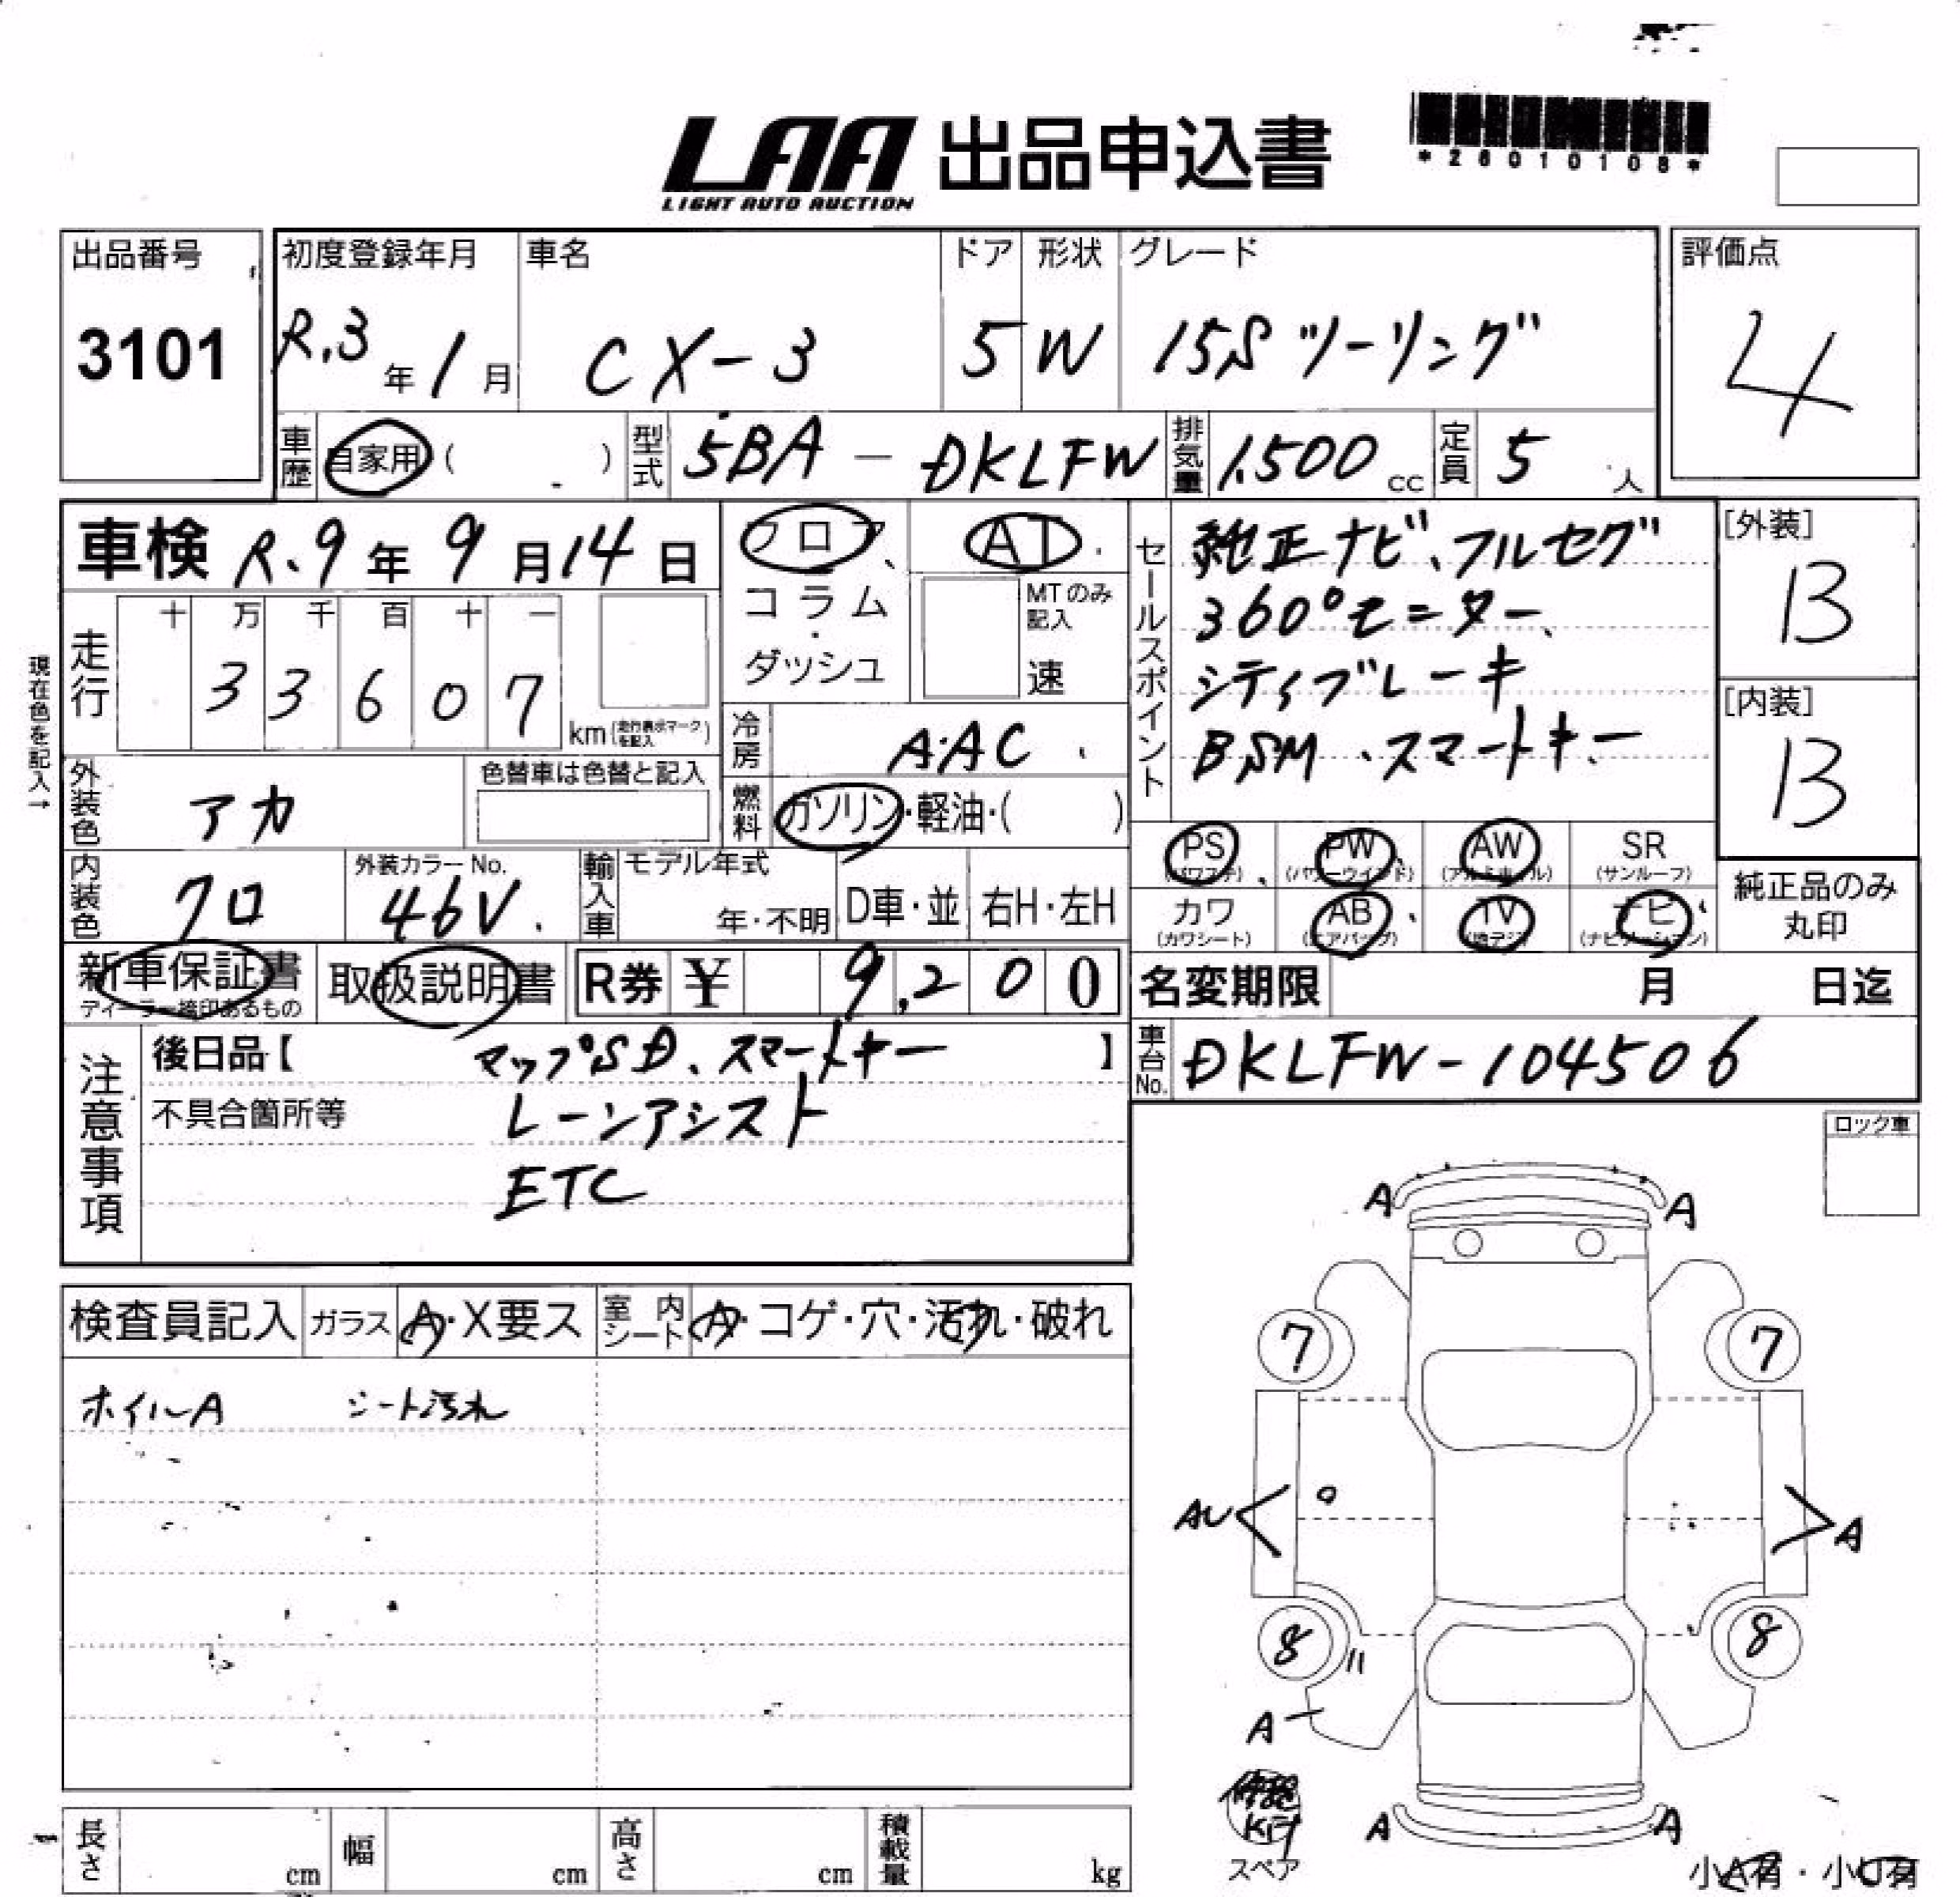 LAA 出品申込書
LIGHT AUTO AUCTION
*26010108*
出品番号
3101
初度登録年月
R.3年1月
車名
CX-3
ドア
5
形状
W
グレード
15S ツーリング
評価点
4
車歴
自家用( )
型式
5BA - DKLFW
排気量
1,500 cc
定員
5 人
車検 R.9年9月14日
フロア
コラム・
ダッシュ
AT
MTのみ記入
速
セールスポイント
純正ナビ、フルセグ
360°モニター、
シティブレーキ
BSM、スマートキー
[外装]
B
[内装]
B
走行
十 万 千 百 十 一
3 3 6 0 7
km(走行表示マークを記入)
現在色を記入→
冷房
A・AC
外装色
アカ
色替車は色替と記入
燃料
ガソリン・軽油・( )
PS
(パワステ)
PW
(パワーウインド)
AW
(アルミホイル)
SR
(サンルーフ)
カワ
(カワシート)
AB
(エアバッグ)
TV
(地デジ)
ナビ
(ナビゲーション)
純正品のみ
丸印
内装色
クロ
外装カラーNo.
46V
輸入車
モデル年式
年・不明
D車・並
右H・左H
新車保証書
ディーラー捺印あるもの
取扱説明書
R券 ¥ 9,200
名変期限 月 日迄
車台No.
DKLFW-104506
注意事項
後日品【 マップSD、スマートキー 】
不具合箇所等 レーンアシスト
ETC
ロック車
検査員記入
ガラス
A・X要ス
室内シート
A・コゲ・穴・汚れ・破れ
ホイルA シート汚れ
A A
7 7
AU A
8 8
A
修理
Kit
スペア
A A
小A有・小U有
長さ cm
幅 cm
高さ cm
積載量 kg